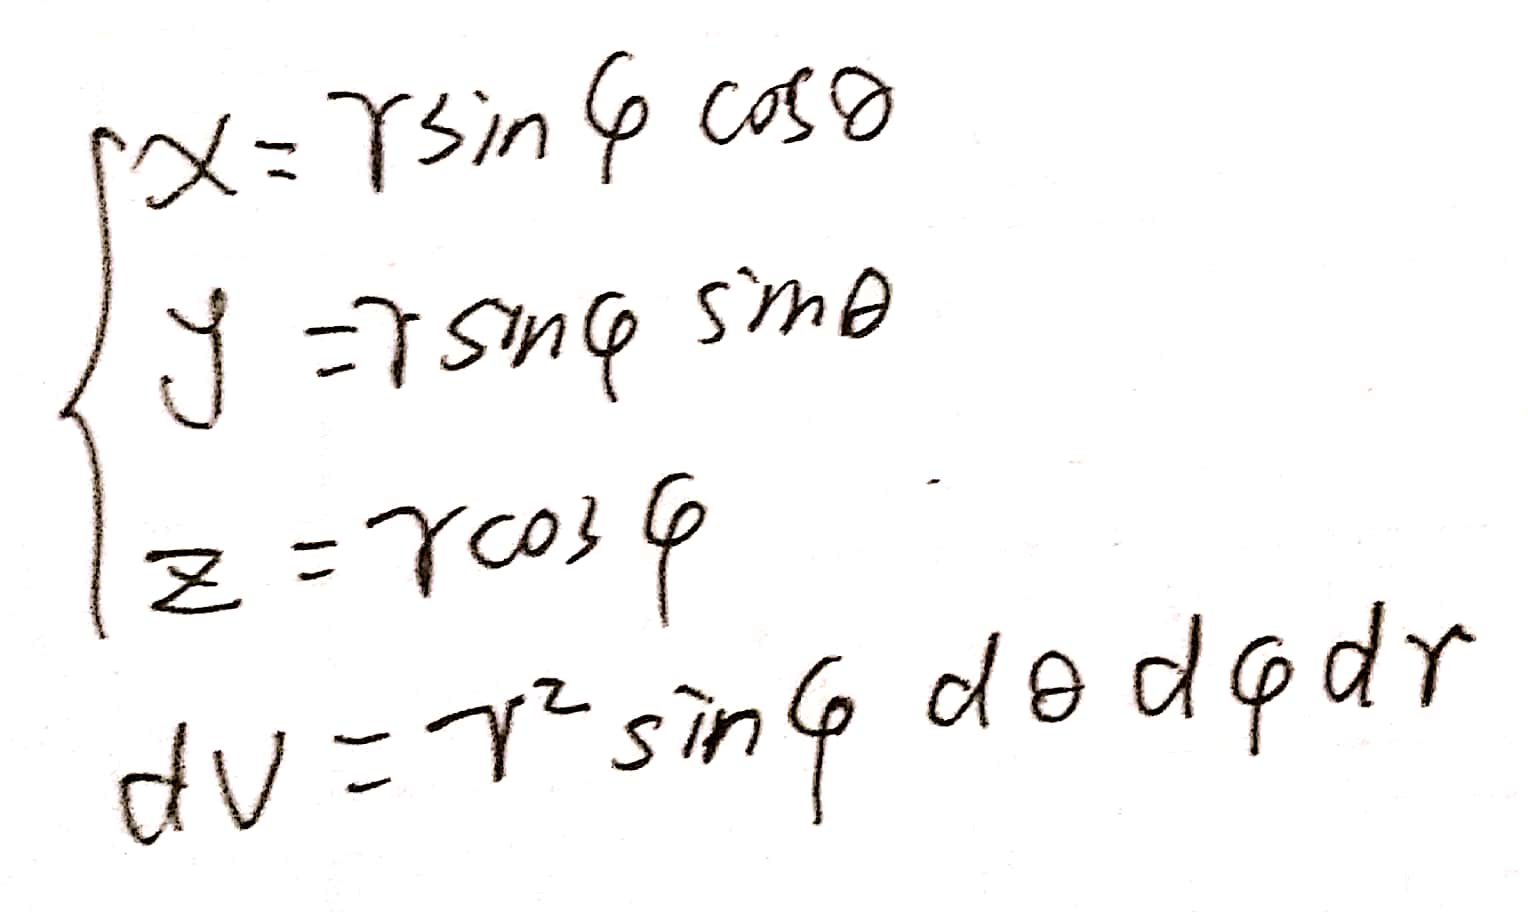 x = r sin φ cos θ
y = r sin φ sin θ
z = r cos φ
dv = r² sin φ dθ dφ dr